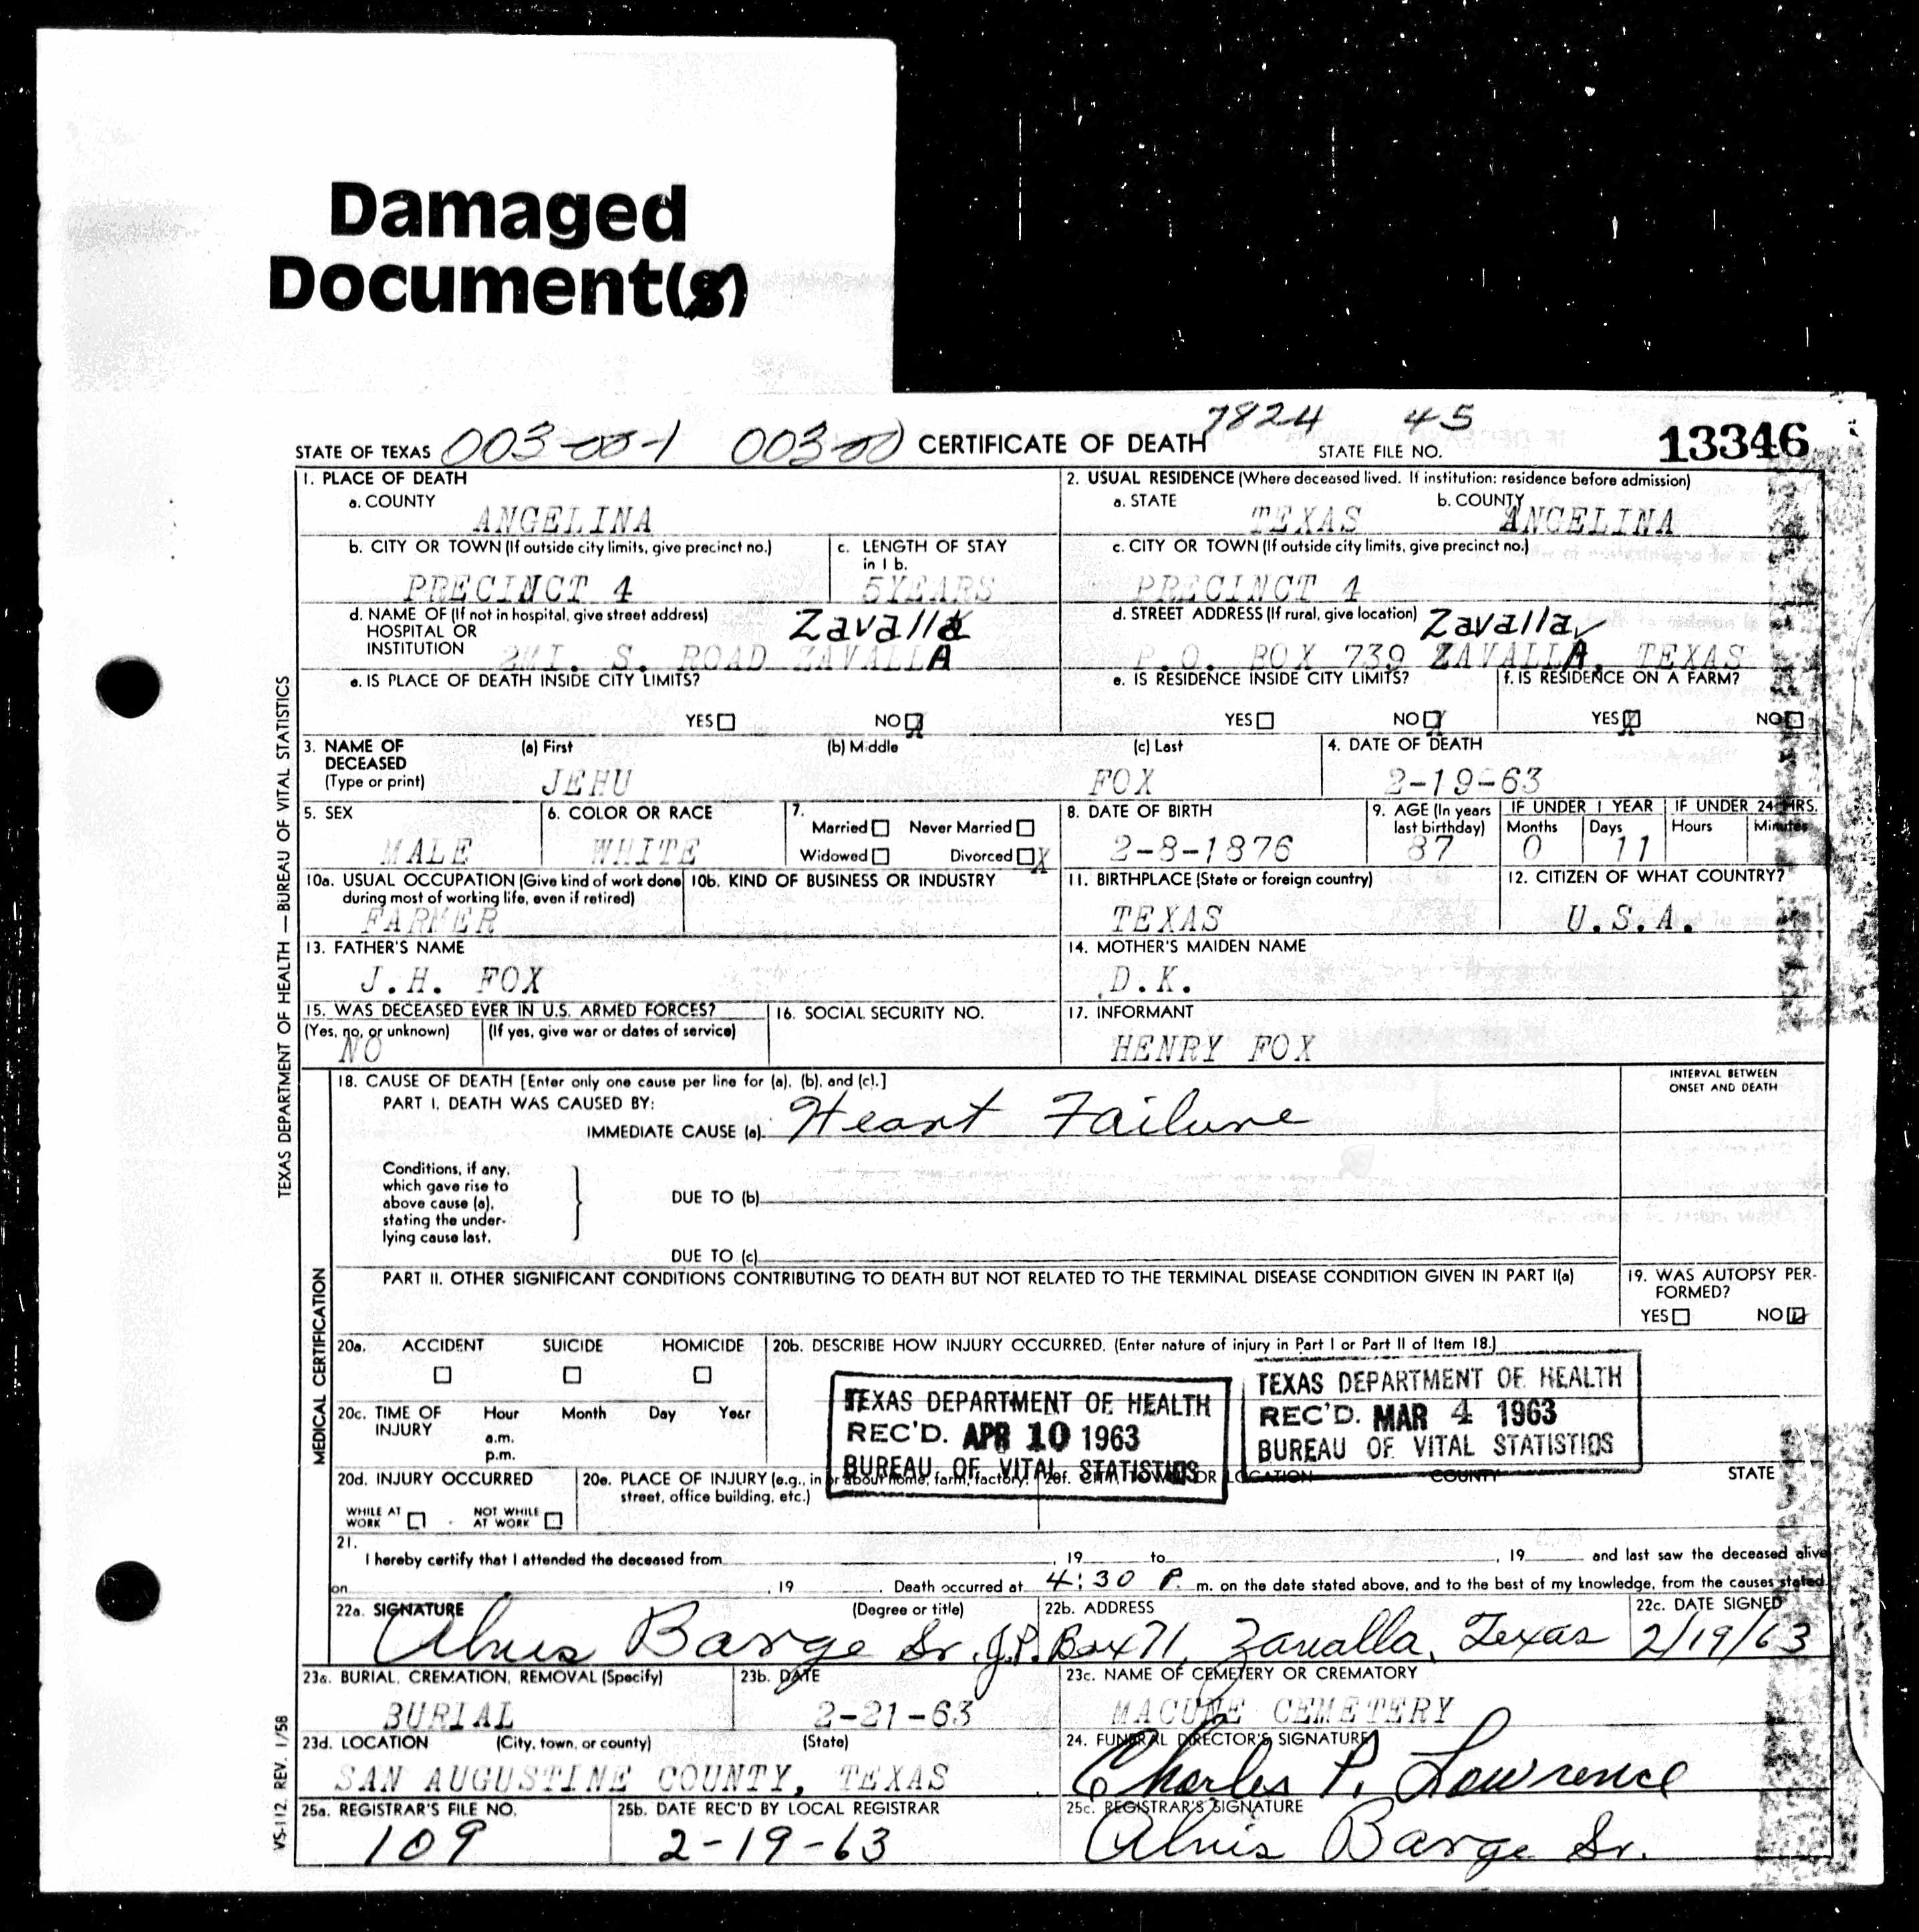 Damaged
Document(s)
7824 45
STATE OF TEXAS 003-00-1 003-00 CERTIFICATE OF DEATH STATE FILE NO. 13346
1. PLACE OF DEATH
a. COUNTY
ANGELINA
2. USUAL RESIDENCE (Where deceased lived. If institution: residence before admission)
a. STATE b. COUNTY
TEXAS ANGELINA
b. CITY OR TOWN (If outside city limits, give precinct no.)
PRECINCT 4
c. LENGTH OF STAY
in 1 b.
5YEARS
c. CITY OR TOWN (If outside city limits, give precinct no.)
PRECINCT 4
d. NAME OF (If not in hospital, give street address)
HOSPITAL OR
INSTITUTION
Zavalla
2MI. S. ROAD ZAVALLA
d. STREET ADDRESS (If rural, give location)
Zavalla
P.O. BOX 739 ZAVALLA, TEXAS
e. IS PLACE OF DEATH INSIDE CITY LIMITS?
YES NO X
e. IS RESIDENCE INSIDE CITY LIMITS?
YES NO X
f. IS RESIDENCE ON A FARM?
YES X NO
3. NAME OF
DECEASED
(Type or print)
(a) First (b) Middle (c) Last
JEHU FOX
4. DATE OF DEATH
2-19-63
5. SEX
MALE
6. COLOR OR RACE
WHITE
7.
Married Never Married
Widowed Divorced X
8. DATE OF BIRTH
2-8-1876
9. AGE (In years
last birthday)
87
IF UNDER 1 YEAR
Months Days
0 11
IF UNDER 24 HRS.
Hours Minutes
10a. USUAL OCCUPATION (Give kind of work done
during most of working life, even if retired)
FARMER
10b. KIND OF BUSINESS OR INDUSTRY
11. BIRTHPLACE (State or foreign country)
TEXAS
12. CITIZEN OF WHAT COUNTRY?
U.S.A.
13. FATHER'S NAME
J.H. FOX
14. MOTHER'S MAIDEN NAME
D.K.
15. WAS DECEASED EVER IN U.S. ARMED FORCES?
(Yes, no, or unknown) (If yes, give war or dates of service)
NO
16. SOCIAL SECURITY NO.
17. INFORMANT
HENRY FOX
18. CAUSE OF DEATH [Enter only one cause per line for (a), (b), and (c).]
PART I. DEATH WAS CAUSED BY:
IMMEDIATE CAUSE (a) Heart Failure
INTERVAL BETWEEN
ONSET AND DEATH
Conditions, if any,
which gave rise to
above cause (a),
stating the under-
lying cause last.
DUE TO (b)
DUE TO (c)
PART II. OTHER SIGNIFICANT CONDITIONS CONTRIBUTING TO DEATH BUT NOT RELATED TO THE TERMINAL DISEASE CONDITION GIVEN IN PART I(a)
19. WAS AUTOPSY PER-
FORMED?
YES NO
20a. ACCIDENT SUICIDE HOMICIDE
20b. DESCRIBE HOW INJURY OCCURRED. (Enter nature of injury in Part I or Part II of Item 18.)
TEXAS DEPARTMENT OF HEALTH
REC'D. APR 10 1963
BUREAU OF VITAL STATISTICS
TEXAS DEPARTMENT OF HEALTH
REC'D. MAR 4 1963
BUREAU OF VITAL STATISTICS
20c. TIME OF
INJURY
Hour Month Day Year
a.m.
p.m.
20d. INJURY OCCURRED
WHILE AT
WORK
NOT WHILE
AT WORK
20e. PLACE OF INJURY (e.g., in or about home, farm, factory,
street, office building, etc.)
20f. CITY, TOWN, OR LOCATION COUNTY STATE
21.
I hereby certify that I attended the deceased from , 19 to , 19 and last saw the deceased alive
on , 19 . Death occurred at 4:30 P. m. on the date stated above, and to the best of my knowledge, from the causes stated.
22a. SIGNATURE (Degree or title)
Alvis Barge Sr. J.P.
22b. ADDRESS
Box 71, Zavalla, Texas
22c. DATE SIGNED
2/19/63
23a. BURIAL, CREMATION, REMOVAL (Specify)
BURIAL
23b. DATE
2-21-63
23c. NAME OF CEMETERY OR CREMATORY
MACUNE CEMETERY
23d. LOCATION (City, town, or county) (State)
SAN AUGUSTINE COUNTY, TEXAS
24. FUNERAL DIRECTOR'S SIGNATURE
Charles P. Lowrence
25a. REGISTRAR'S FILE NO.
109
25b. DATE REC'D BY LOCAL REGISTRAR
2-19-63
25c. REGISTRAR'S SIGNATURE
Alvis Barge Sr.
TEXAS DEPARTMENT OF HEALTH — BUREAU OF VITAL STATISTICS
MEDICAL CERTIFICATION
VS-112 REV. 1/58